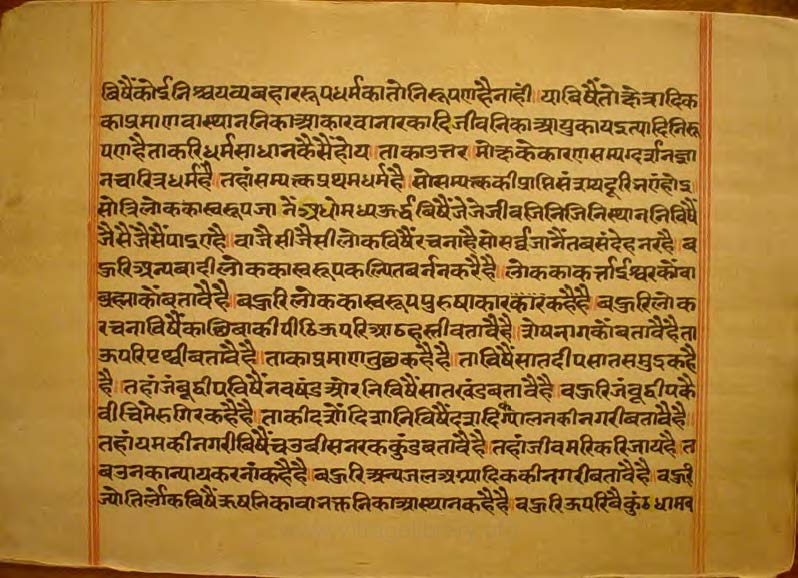 बिषैंकोईनिश्चयव्यबहाररूपधर्मकातोनिरूपणहैनाहीं ॥ याबिषैंतोक्षेत्रादिक
काप्रमाणवास्थाननिकाआकारवानारकादिजीवनिकाआयुकायइत्यादिनिरू
पणहैताकरिधर्मसाधानकैसैंहोय ॥ ताकाउत्तर ॥ मोक्षकेकारणसम्यग्दर्शनज्ञा
नचारित्रधर्महै ॥ तहांसम्यत्कप्रथमधर्महै ॥ सोसम्यत्ककीप्राप्तिसंशयदूरिनएंहोइ
सोत्रिलोककास्वरूपजानैं ॥ अधोमध्यऊर्द्धबिषैंजेजेजीवजिनिजिनिस्थाननिविषैं
जैसैजैसैंपाइएहै ॥ वाजैसीजैसीलोकविषैंरचनाहैसोसर्वजानैंतबसंदेहनरहै ॥ ब
हुरिअन्यबादीलोककास्वरूपकल्पितबर्ननकरैहै ॥ लोककाकर्त्ताईश्वरकोंवा
ब्रह्माकोंबतावैहै ॥ बहुरिलोककास्वरूपपुरुषाकारकहैहै ॥ बहुरिलोक
रचनाविषैंकाछिबाकीपीठिऊपरिआठहस्तीबतावैहै ॥ शेषनागकौंबतावैहैता
ऊपरिपृथ्वीबतावैहै ॥ ताकाप्रमाणतुछकहैहै ॥ ताविषैंसातदीपसातसमुद्रकहै
है ॥ तहांजंबूद्वीपविषैंनवषंडओरनिविषैंसातखंडबतावैहै ॥ बहुरिजंबूद्वीपकै
वीचिमेरुगिरकहैहै ॥ ताकीदशोंदिशानिविषैंदशदिग्पालनकीनगरीबतावैहै ॥
तहांयमकीनगरीबिषैंचउरीसनरककुंडबतावैहै ॥ तहांजीवमरिकरिजायहै ॥ त
बउनकान्यायकरनांकहैहै ॥ बहुरिअन्यजलअग्न्यादिककीनगरीबतावैहै ॥ बहुरि
ज्योतिर्लोकबिषैंऋषनिकावानक्तनिकाआस्थानकहैहै ॥ बहुरिऊपरिबैकुंठधामब